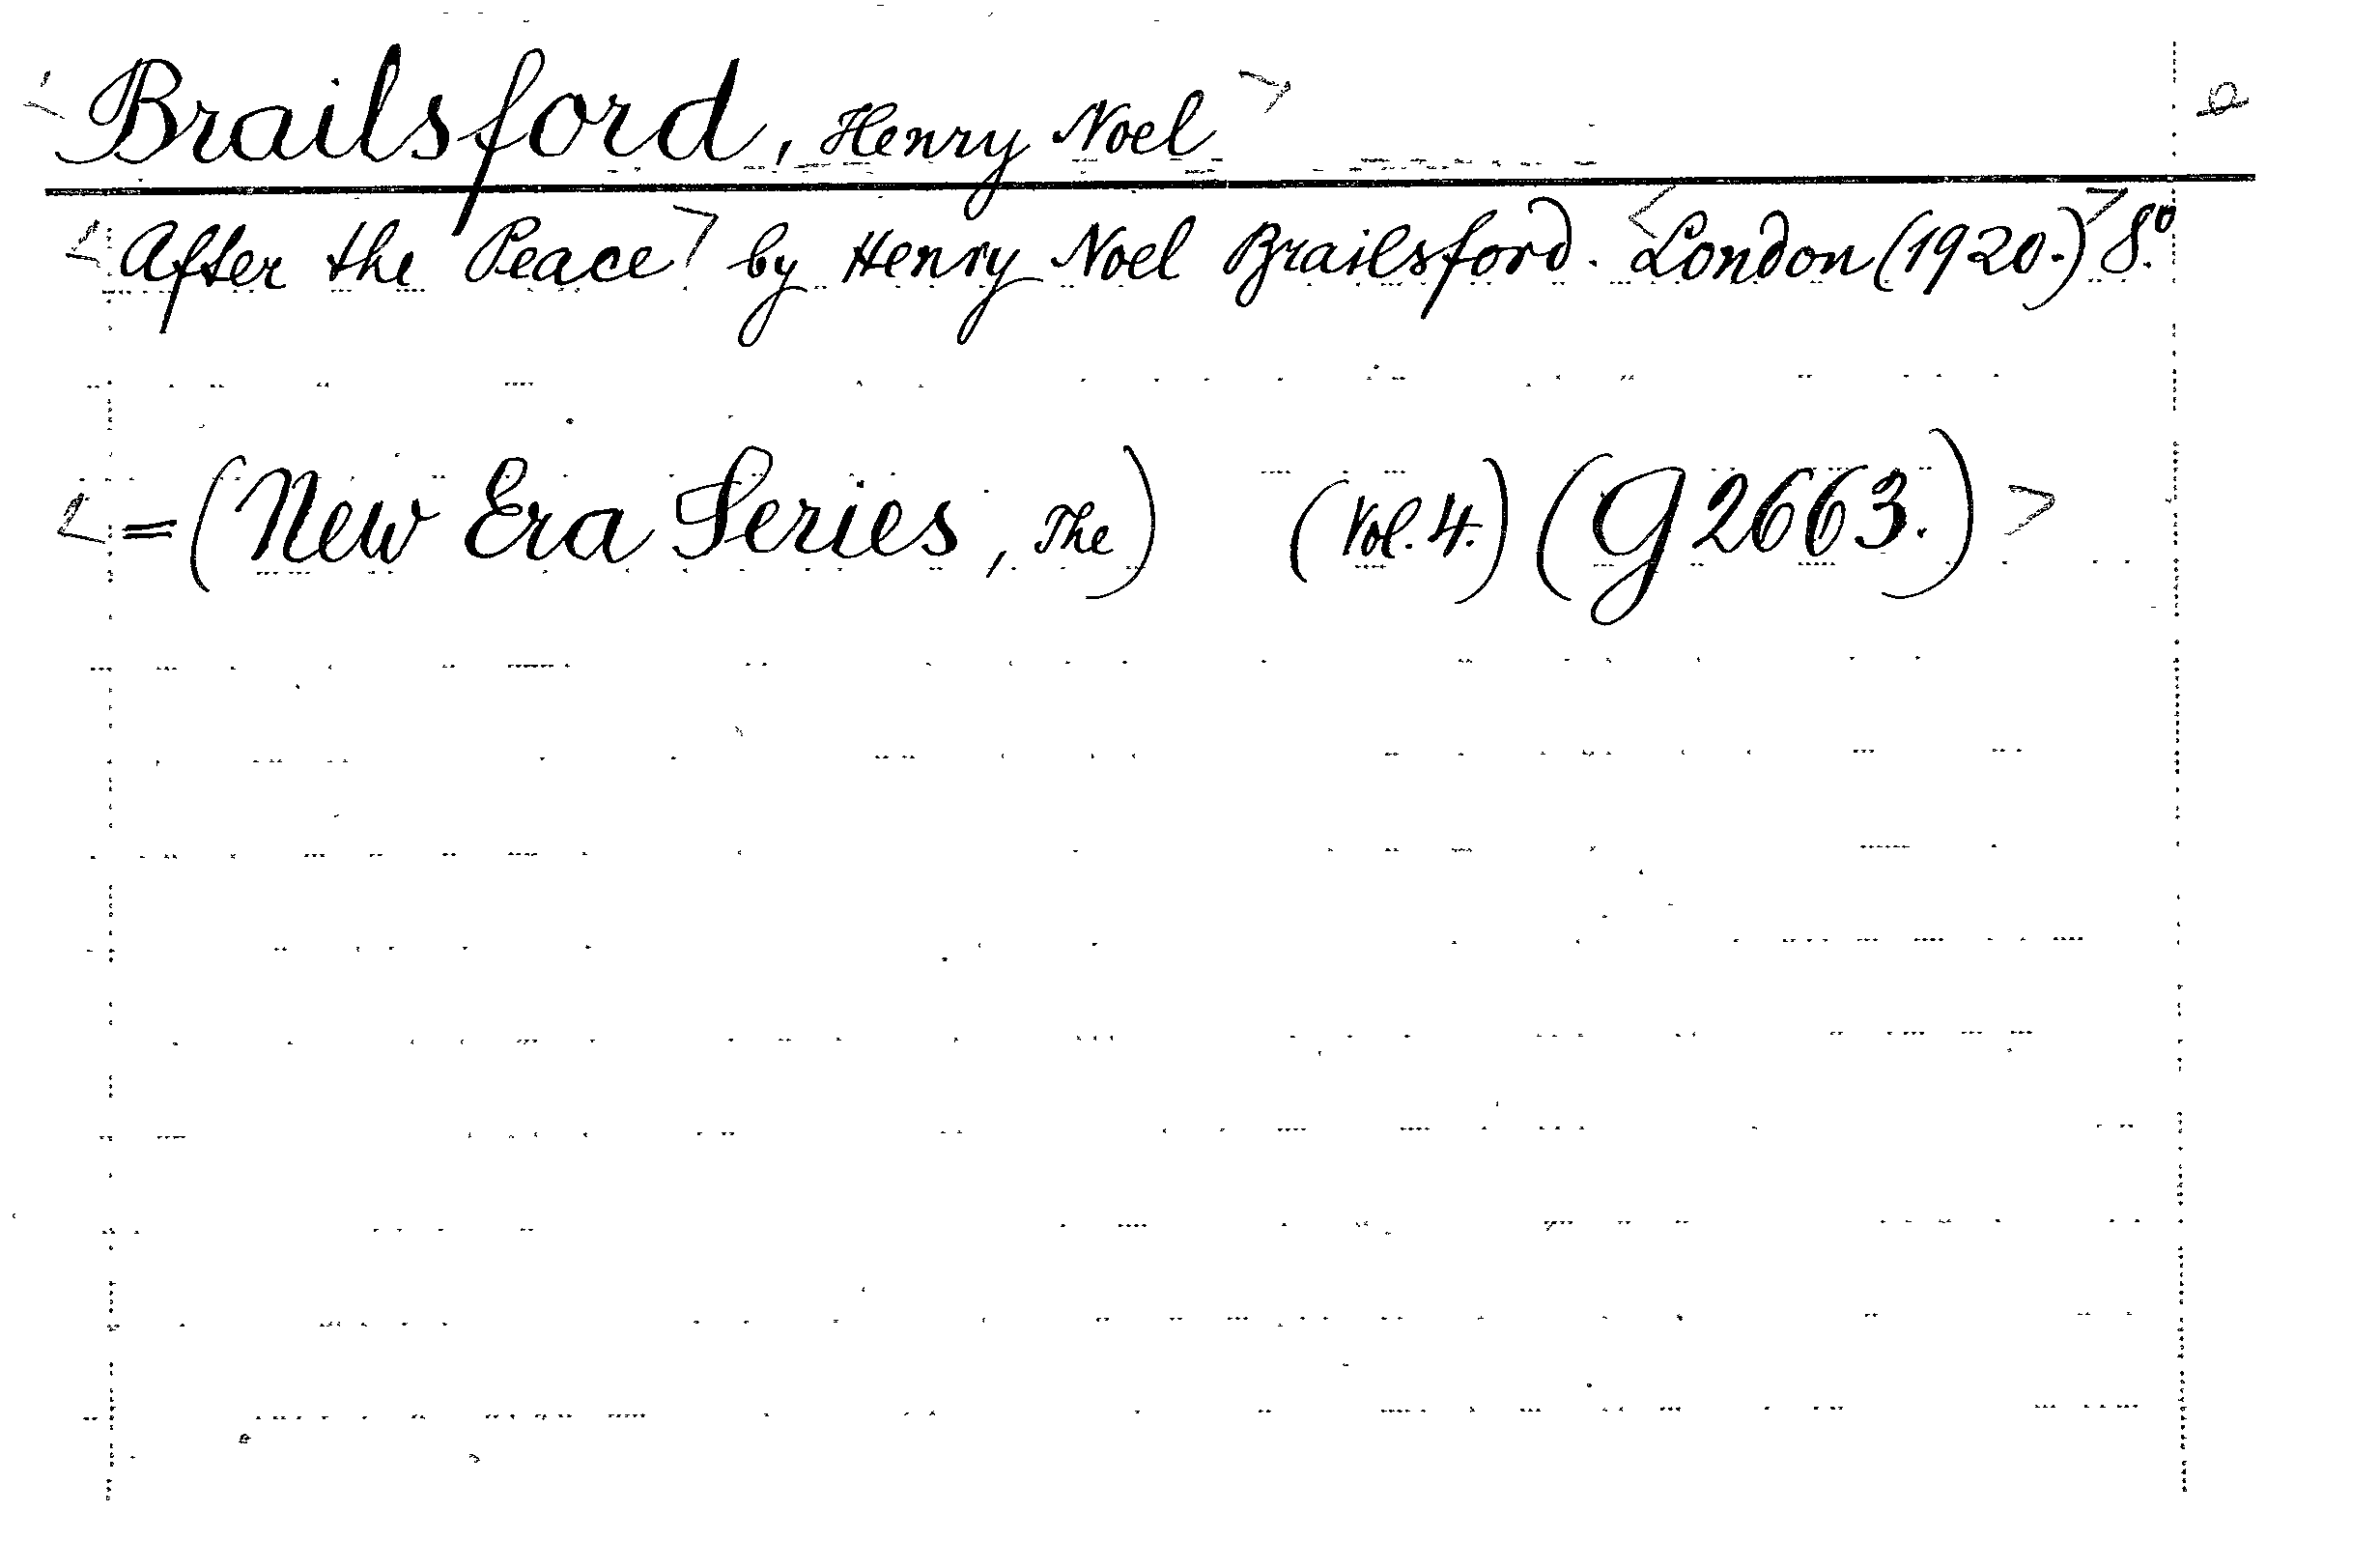 <Brailsford, Henry Noel> a
<After the Peace> by Henry Noel Brailsford. <London (1920.)> 8º.
<=(New Era Series, The) (Vol. 4.) (G 2663.)>